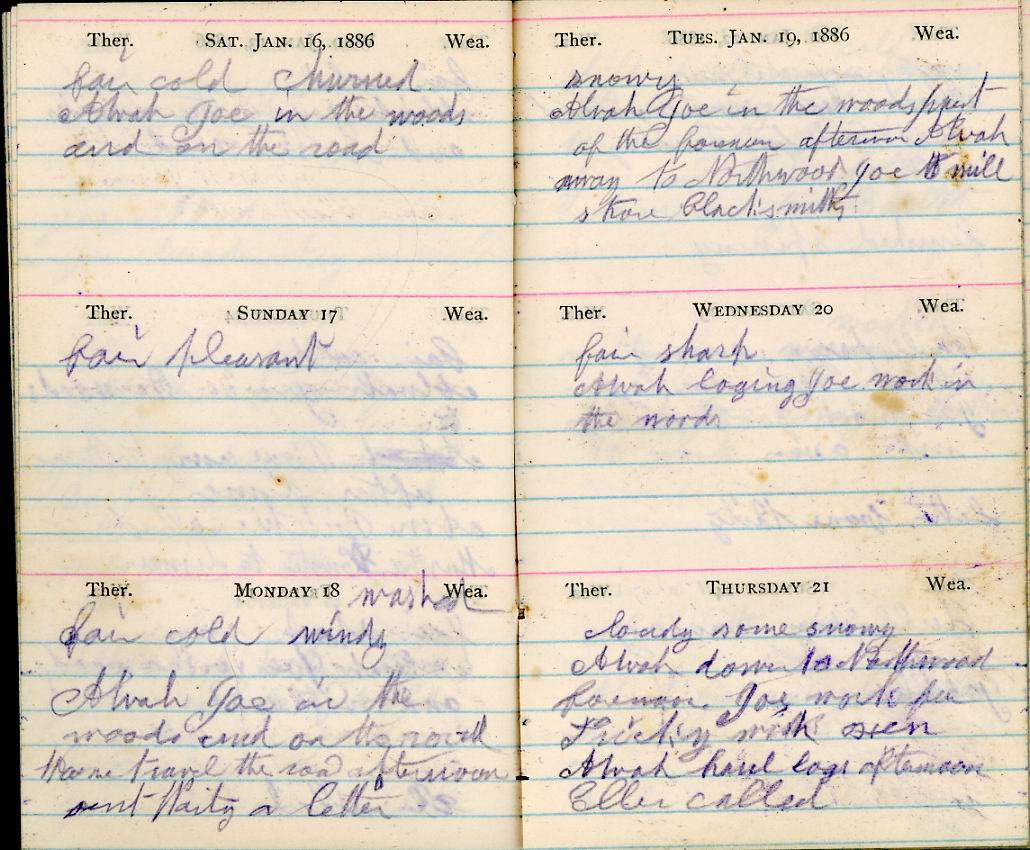 Ther. SAT. JAN. 16, 1886 Wea.
fair cold churned
Alvah Joe in the woods
and on the road
Ther. SUNDAY 17 Wea.
fair pleasant
Ther. MONDAY 18 Wea.
washed
fair cold windy
Alvah Joe in the
woods and on the road
travel the road afternoon
sent a letter
Ther. TUES. JAN. 19, 1886 Wea.
snowy
Alvah Joe in the woods part
of the forenoon afternoon Alvah
away to Northwood Joe to mill
store blacksmiths
Ther. WEDNESDAY 20 Wea.
fair sharp
Alvah loging Joe work in
the woods
Ther. THURSDAY 21 Wea.
cloudy some snowy
Alvah down to Northwood
forenoon Joe work for
with oxen
Alvah haul logs afternoon
Ellen called